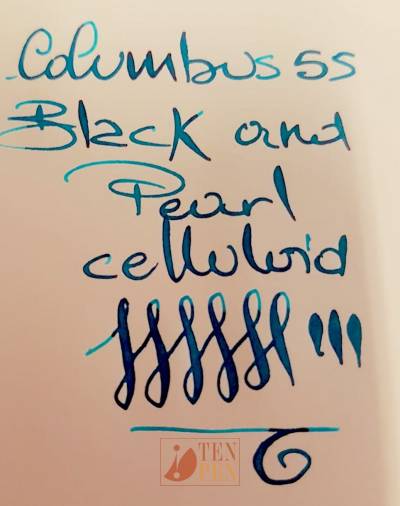 Columbus 55
Black and
Pearl
celluloid
TEN
PEN